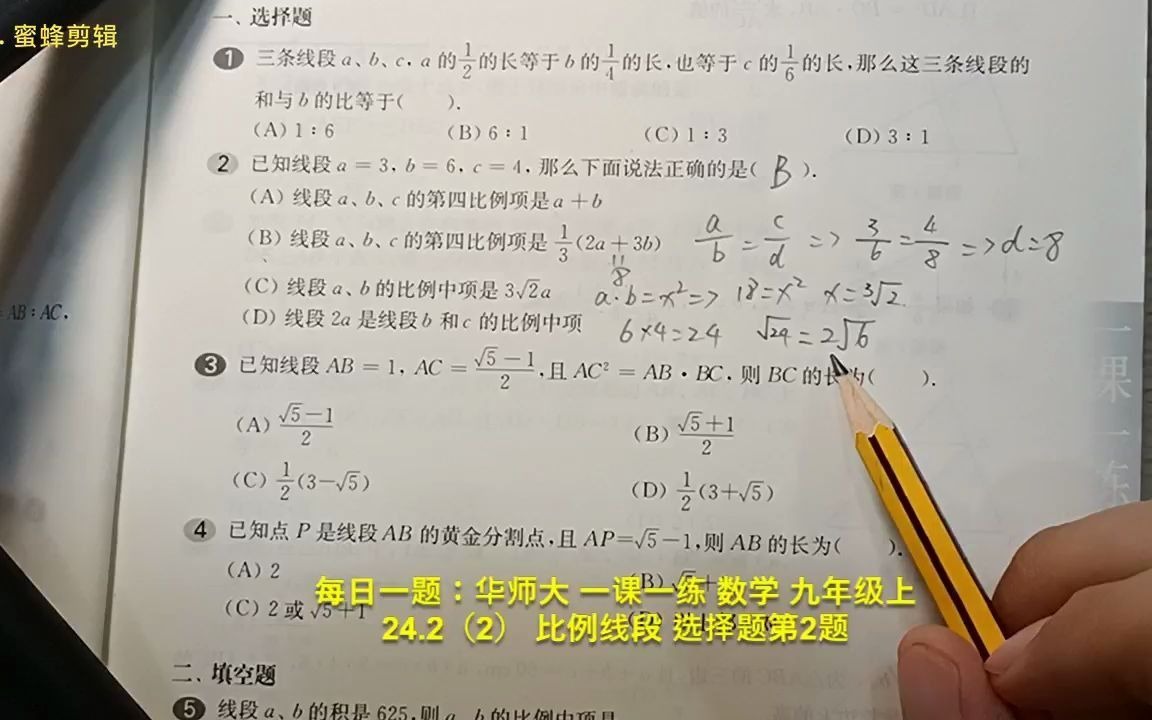 . 蜜蜂剪辑
一、选择题
1 三条线段 a、b、c，a 的1/2的长等于 b 的1/4的长，也等于 c 的1/6的长，那么这三条线段的
和与 b 的比等于(　　).
(A) 1∶6 (B) 6∶1 (C) 1∶3 (D) 3∶1
2 已知线段 a = 3，b = 6，c = 4，那么下面说法正确的是( B ).
(A) 线段 a、b、c 的第四比例项是 a + b
(B) 线段 a、b、c 的第四比例项是 1/3(2a + 3b) a/b = c/d => 3/6 = 4/8 => d = 8
= 8
(C) 线段 a、b 的比例中项是 3√2a a·b = x² => 18 = x² x = 3√2
(D) 线段 2a 是线段 b 和 c 的比例中项 6×4=24 √24 = 2√6
= AB∶AC，
3 已知线段 AB = 1，AC = (√5−1)/2，且 AC² = AB·BC，则 BC 的长为(　　).
(A) (√5−1)/2 (B) (√5+1)/2
(C) 1/2(3−√5) (D) 1/2(3+√5)
4 已知点 P 是线段 AB 的黄金分割点，且 AP=√5−1，则 AB 的长为(　　).
(A) 2 (B) √5+
(C) 2 或 √5+1
每日一题：华师大 一课一练 数学 九年级上
24.2（2） 比例线段 选择题第2题
二、填空题
5 线段 a、b 的积是 625，则 a、b 的比例中项是
一课一练